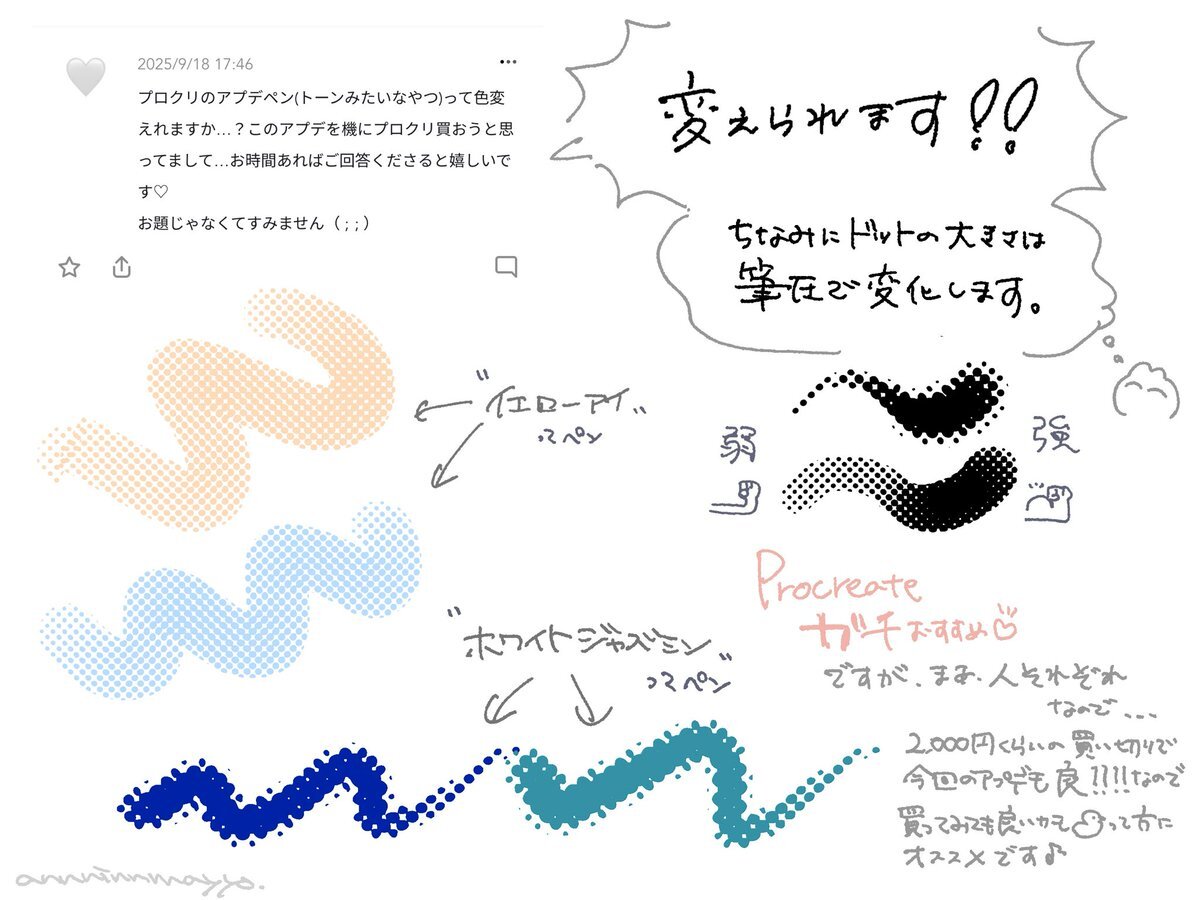 2025/9/18 17:46
プロクリのアプデペン(トーンみたいなやつ)って色変
えれますか…？このアプデを機にプロクリ買おうと思
ってまして…お時間あればご回答くださると嬉しいで
す♡
お題じゃなくてすみません（ ; ; ）
変えられます!!
ちなみにドットの大きさは
筆圧で変化します。
"イエローアイ"
ってペン
弱
強
"ホワイトジャズミン"
ってペン
Procreate
ガチおすすめ♡
ですが、まぁ、人それぞれ
なので...
2,000円くらいの買い切りで
今回のアプデも良!!!!なので
買ってみても良いかもって方に
オススメです♪